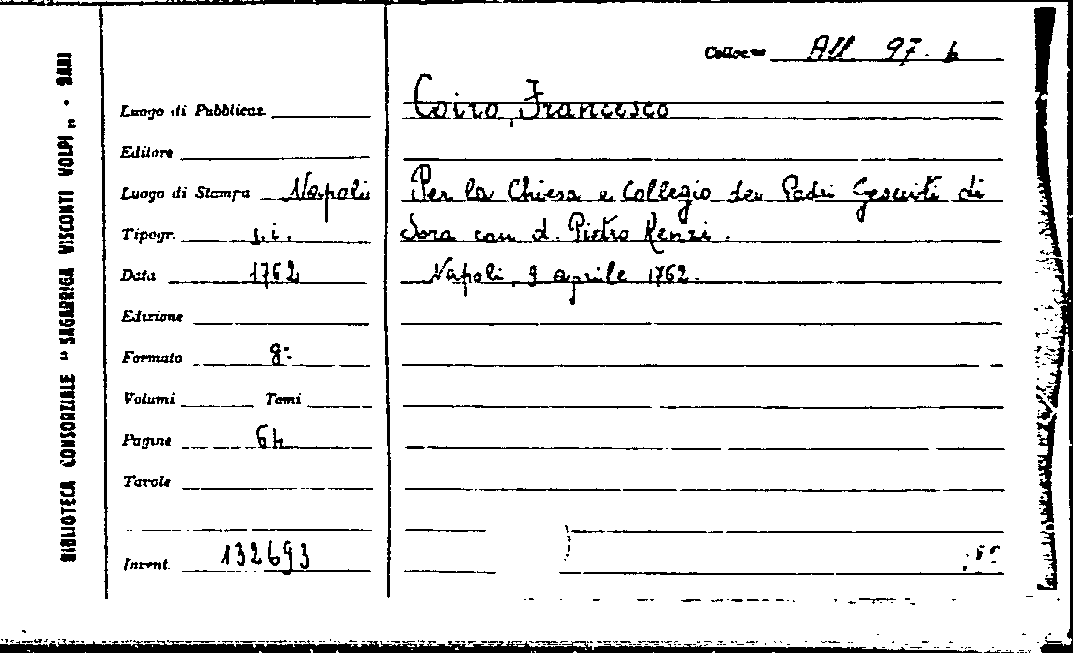 BIBLIOTECA CONSORZIALE "SAGARRIGA VISCONTI VOLPI„ - BARI
Colloc.ne All 97. b
Luogo di Pubblicaz.
Coiro, Francesco
Editore
Luogo di Stampa Napoli
Per la Chiesa e Collegio dei Padri Gesuiti di
Tipogr. s.i.
Sora con d. Pietro Renzi.
Data 1762
Napoli, 9 aprile 1762.
Edizione
Formato 8°
Volumi Tomi
Pagine 64
Tavole
Invent. 132693